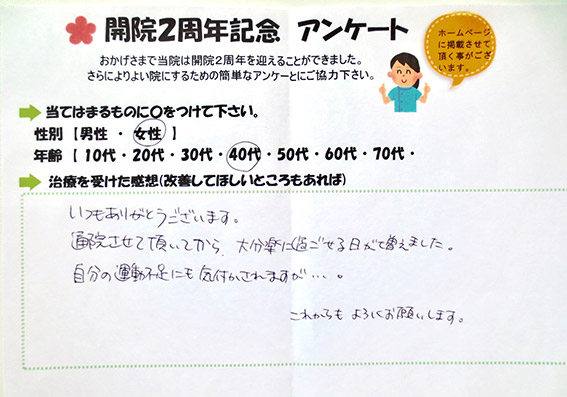 開院2周年記念 アンケート
おかげさまで当院は開院2周年を迎えることができました。
さらによりよい院にするための簡単なアンケーとにご協力下さい。
ホームページ
に掲載させて
頂く事がござ
います。
当てはまるものに〇をつけて下さい。
性別 【 男性 ・ 女性 】
年齢 【 10代・20代・30代・40代・50代・60代・70代・
治療を受けた感想(改善してほしいところもあれば)
いつもありがとうございます。
通院させて頂いてから、大分楽に過ごせる日がて増えました。
自分の運動不足にも気付かされますが…。
これからも よろしくお願いします。